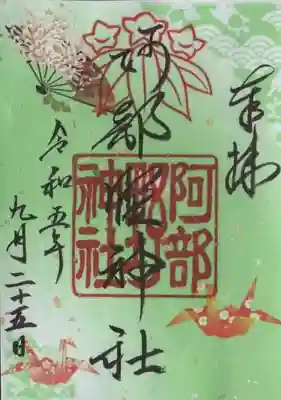 奉拝
阿部野神社
阿部野神社
令和五年
九月二十五日